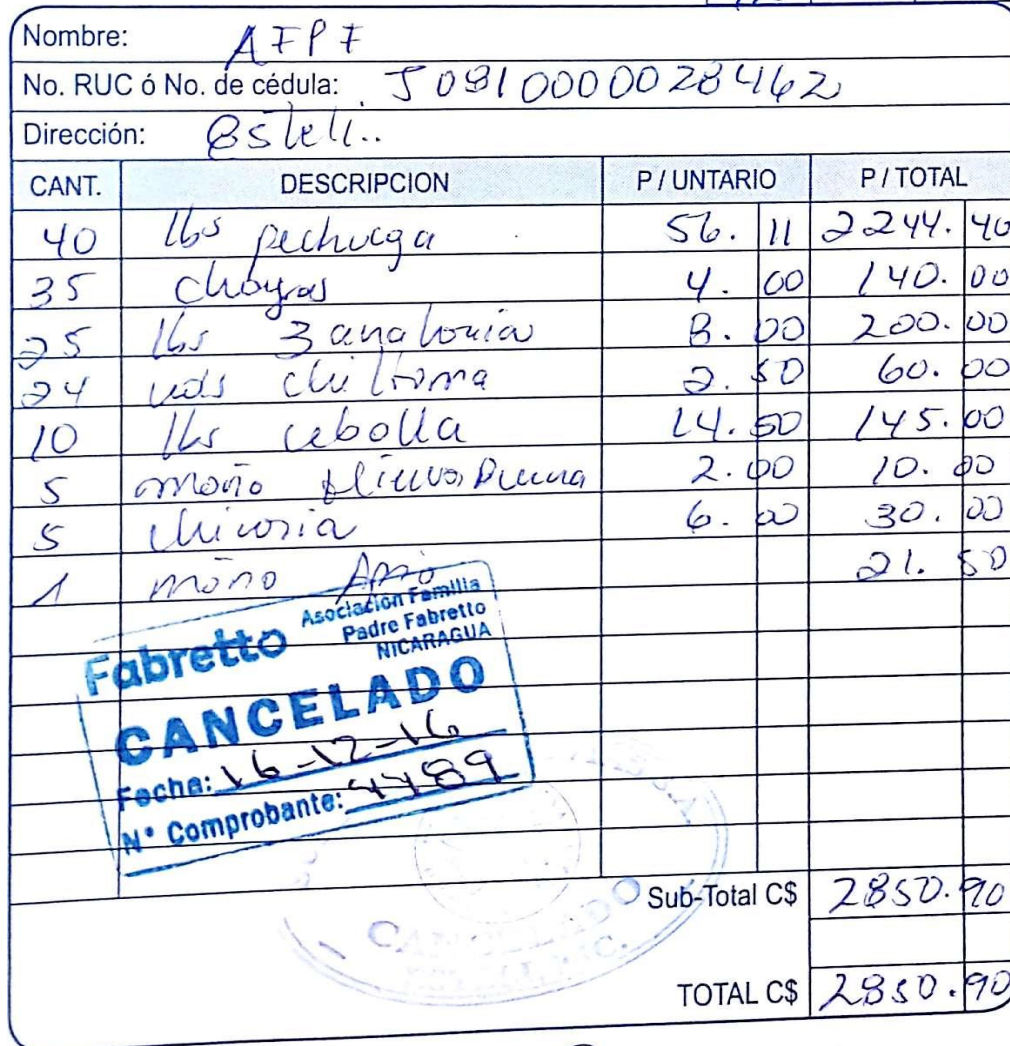 Nombre: AFPF
No. RUC ó No. de cédula: J0810000028462
Dirección: Esteli..
CANT. DESCRIPCION P / UNTARIO P / TOTAL
40 lbs pechuga 56. 11 2244. 40
35 chayas 4. 00 140. 00
25 lbs Zanahoria 8. 00 200. 00
24 uds chiltoma 2. 50 60. 00
10 lbs cebolla 14. 50 145. 00
5 moño 2. 00 10. 00
5 chicoria 6. 00 30. 00
1 moño Apio 21. 50
Fabretto Asociación Familia
Padre Fabretto
NICARAGUA
CANCELADO
Fecha: 16-12-16
N° Comprobante: 4489
CANCELADO
Sub-Total C$ 2850. 90
TOTAL C$ 2850. 90